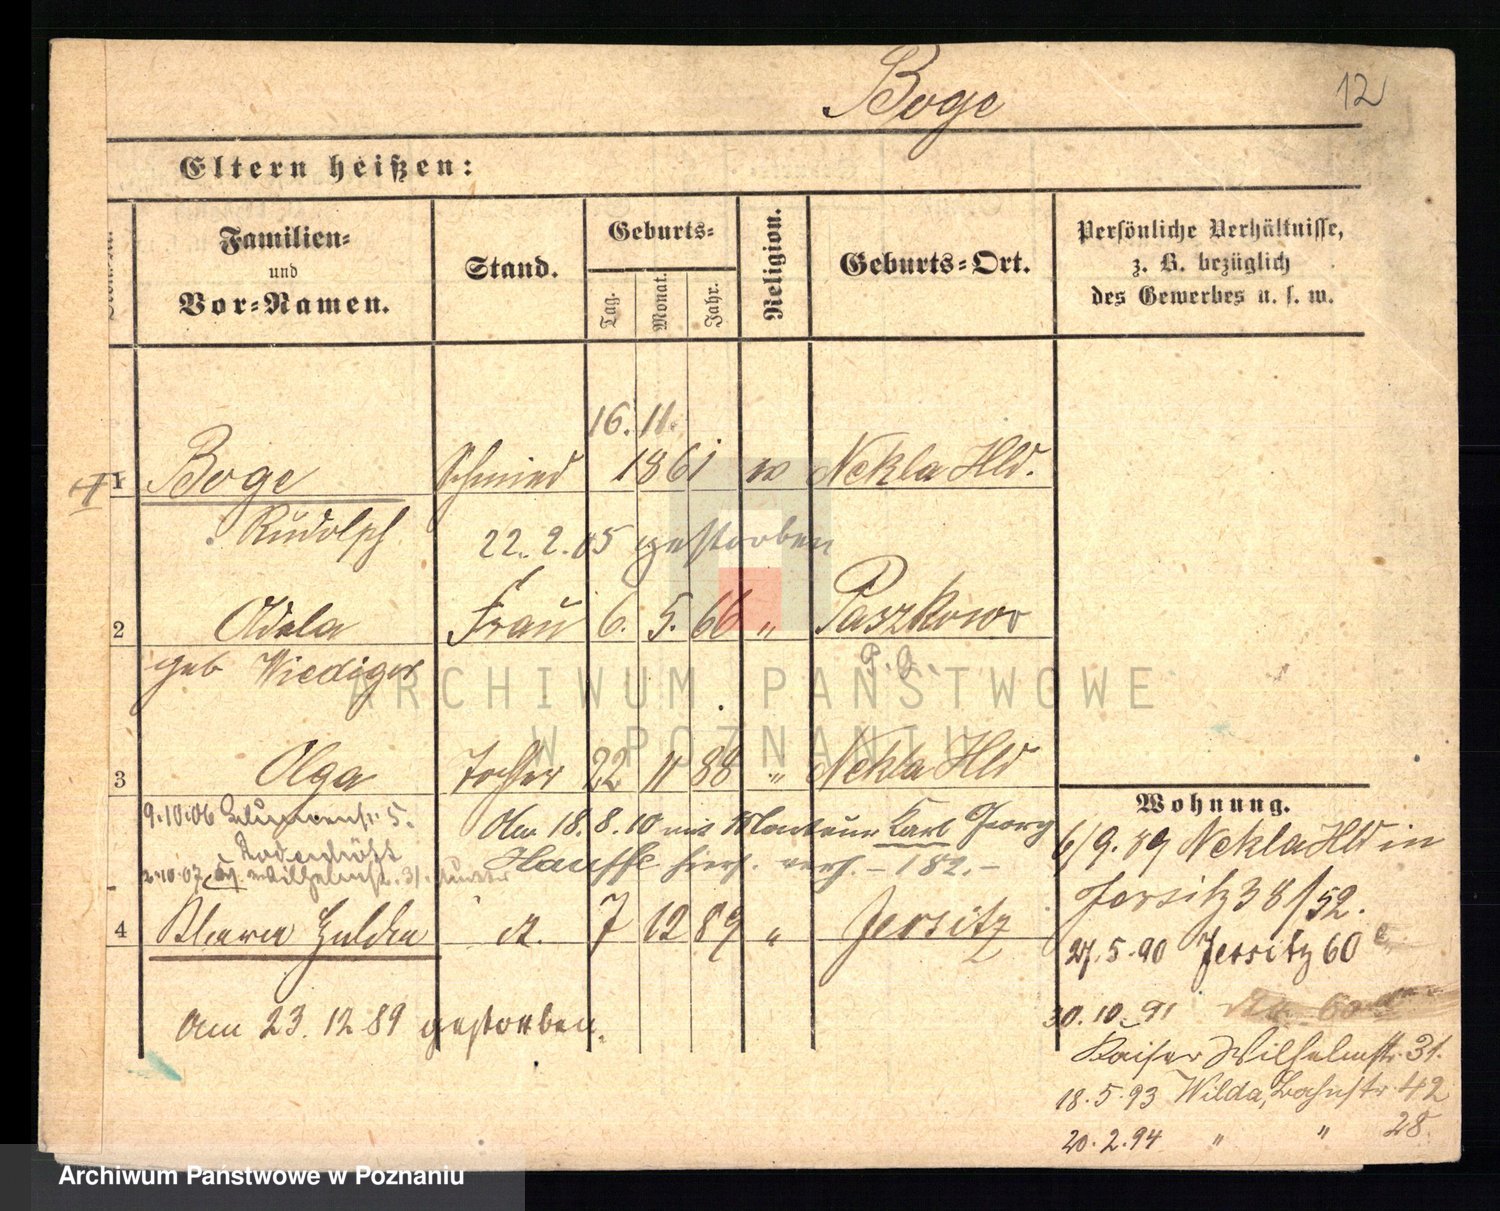 Boge
12
Eltern heißen:
Familien=
und
Vor=Namen.
Stand.
Geburts=
Tag.
Monat.
Jahr.
Religion.
Geburts=Ort.
Persönliche Verhältnisse,
z. B. bezüglich
des Gewerbes u. s. w.
16. 11.
1 Boge Schmied 1861 Nekla Hld.
Rudolph
22. 2. 05 gestorben
2 Adela Frau 6. 5. 66 " Paszkowo
geb Wiediger
3 Olga Tochter 22 11 88 " Nekla Hld
9.10.06 Blumenstr. 5.
Am 18. 8. 10 mit Monteur Karl Georg
Hauffe hies. verh. – 182. –
2.10.07 Wilhelmstr. 31.
4 Hulda d. 7 12 89 " Jersitz
Am 23. 12 89 gestorben.
Wohnung.
6/9. 89 Nekla Hld in
Jersitz 38/52.
27. 5. 90 Jersitz 60
30. 10. 91
Kaiser Wilhelmstr. 31.
18. 5. 93 Wilda, Bahnstr. 42
20. 2. 94 " " 28.
ARCHIWUM PAŃSTWOWE
W POZNANIU
Archiwum Państwowe w Poznaniu